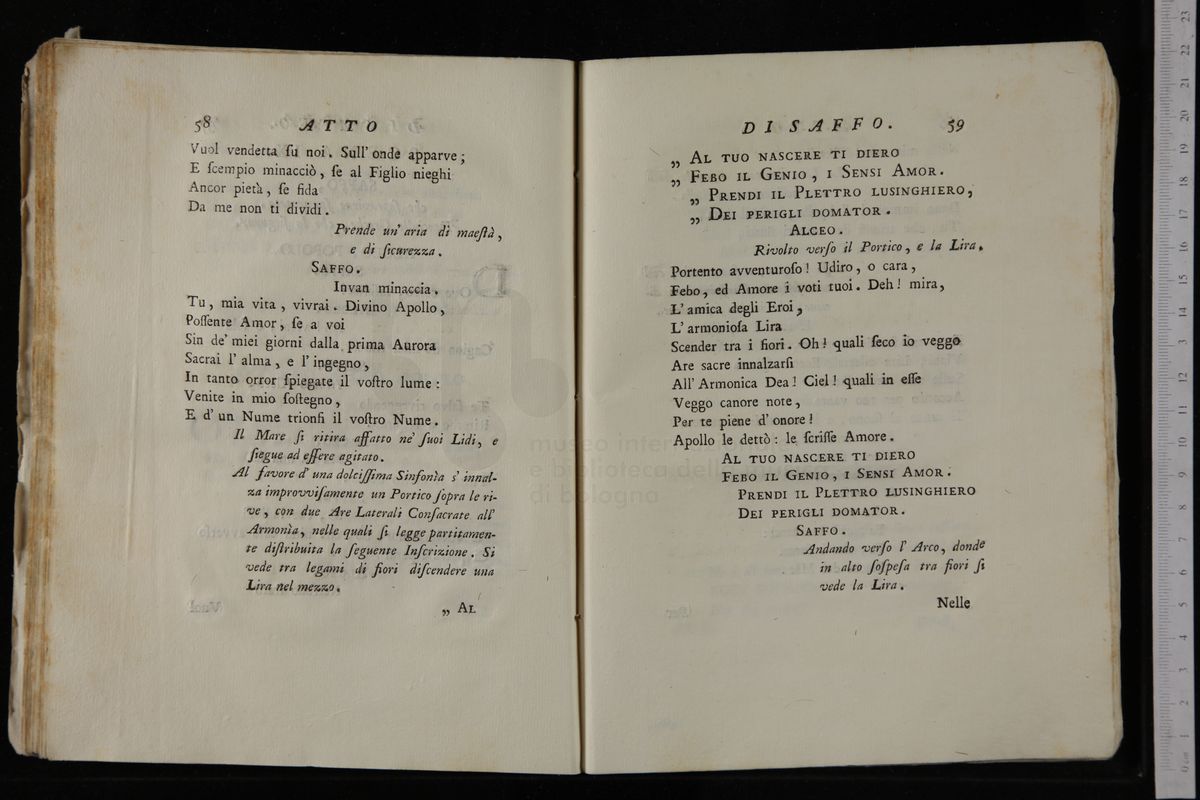 58 ATTO
Vuol vendetta ſu noi. Sull' onde apparve;
E ſcempio minacciò, ſe al Figlio nieghi
Ancor pietà, ſe fida
Da me non ti dividi.
Prende un' aria di maeſtà,
e di ſicurezza.
SAFFO.
Invan minaccia.
Tu, mia vita, vivrai. Divino Apollo,
Poſſente Amor, ſe a voi
Sin de' miei giorni dalla prima Aurora
Sacrai l' alma, e l' ingegno,
In tanto orror ſpiegate il voſtro lume:
Venite in mio ſoſtegno,
E d' un Nume trionfi il voſtro Nume.
Il Mare ſi ritira affatto ne' ſuoi Lidi, e
ſiegue ad eſſere agitato.
Al favore d' una dolciſſima Sinfonìa s' innal-
za improvviſamente un Portico ſopra le ri-
ve, con due Are Laterali Conſacrate all'
Armonìa, nelle quali ſi legge partitamen-
te diſtribuita la ſeguente Inſcrizione. Si
vede tra legami di fiori diſcendere una
Lira nel mezzo.
„ AL
DI SAFFO. 59
„ AL TUO NASCERE TI DIERO
„ FEBO IL GENIO, I SENSI AMOR.
„ PRENDI IL PLETTRO LUSINGHIERO,
„ DEI PERIGLI DOMATOR.
ALCEO.
Rivolto verſo il Portico, e la Lira.
Portento avventuroſo! Udiro, o cara,
Febo, ed Amore i voti tuoi. Deh! mira,
L' amica degli Eroi,
L' armonioſa Lira
Scender tra i fiori. Oh! quali ſeco io veggo
Are sacre innalzarſi
All' Armonica Dea! Ciel! quali in eſſe
Veggo canore note,
Per te piene d' onore!
Apollo le dettò: le ſcriſſe Amore.
AL TUO NASCERE TI DIERO
FEBO IL GENIO, I SENSI AMOR.
PRENDI IL PLETTRO LUSINGHIERO
DEI PERIGLI DOMATOR.
SAFFO.
Andando verſo l' Arco, donde
in alto ſoſpeſa tra fiori ſi
vede la Lira.
Nelle